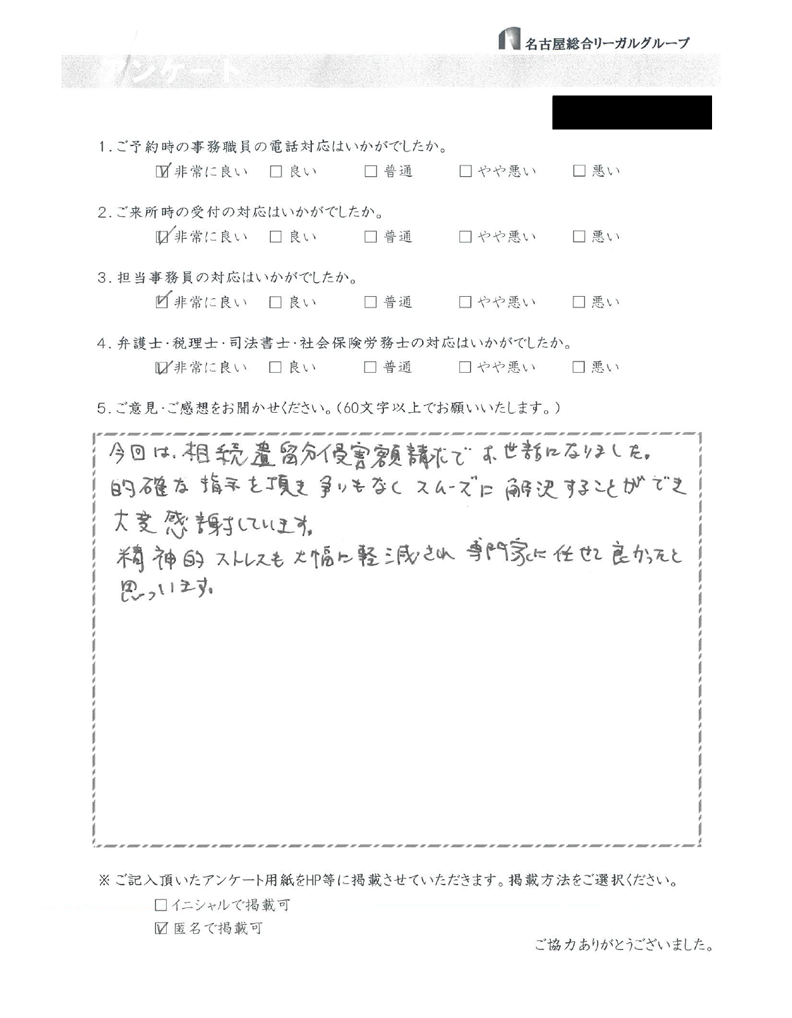 名古屋総合リーガルグループ
アンケート
1.ご予約時の事務職員の電話対応はいかがでしたか。
☑非常に良い □良い □普通 □やや悪い □悪い
2.ご来所時の受付の対応はいかがでしたか。
☑非常に良い □良い □普通 □やや悪い □悪い
3.担当事務員の対応はいかがでしたか。
☑非常に良い □良い □普通 □やや悪い □悪い
4.弁護士・税理士・司法書士・社会保険労務士の対応はいかがでしたか。
☑非常に良い □良い □普通 □やや悪い □悪い
5.ご意見・ご感想をお聞かせください。(60文字以上でお願いいたします。)
今回は、相続遺留分侵害額請求でお世話になりました。
的確な指示を頂き争いもなくスムーズに解決することができ
大変感謝しています。
精神的ストレスも大幅に軽減され専門家に任せて良かったと
思っています。
※ご記入頂いたアンケート用紙をHP等に掲載させていただきます。掲載方法をご選択ください。
□イニシャルで掲載可
☑匿名で掲載可
ご協力ありがとうございました。